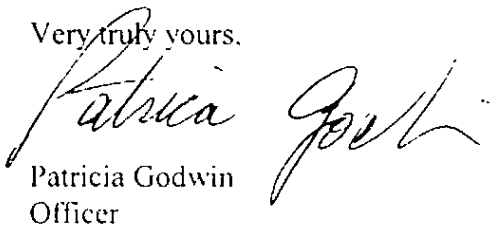 Very truly yours,
Patricia Godwin
Patricia Godwin
Officer